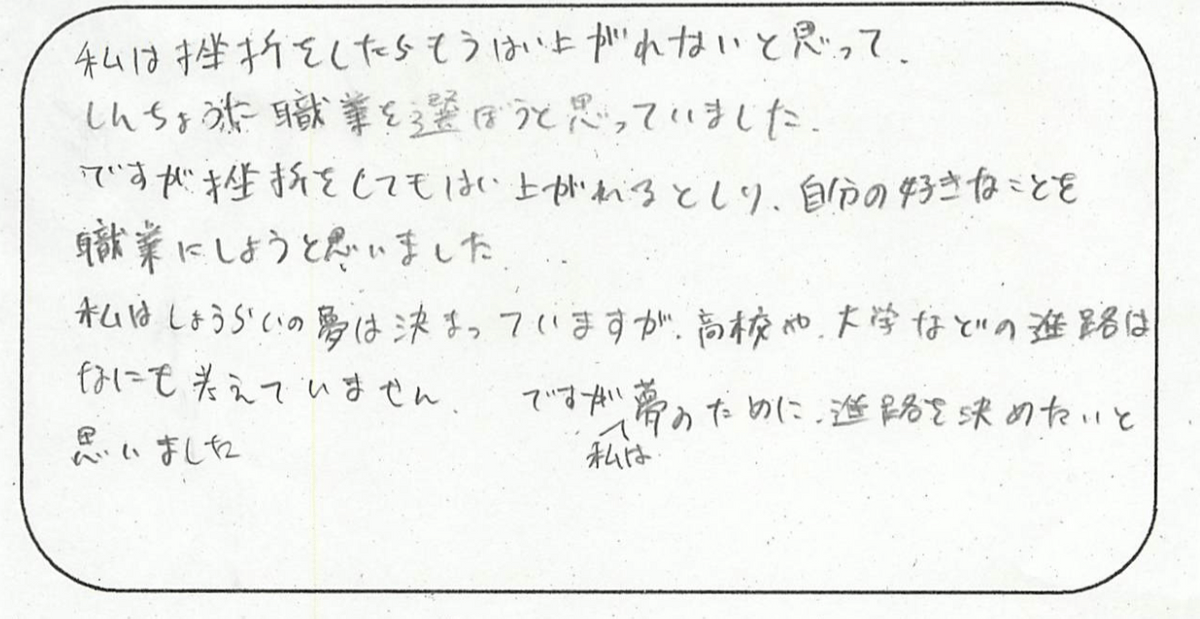 私は挫折をしたらもうはい上がれないと思って、
しんちょうに職業を選ぼうと思っていました。
ですが挫折をしてもはい上がれるとしり、自分の好きなことを
職業にしようと思いました。
私はしょうらいの夢は決まっていますが、高校や、大学などの進路は
なにも考えていません。 ですが私は夢のために、進路を決めたいと
思いました